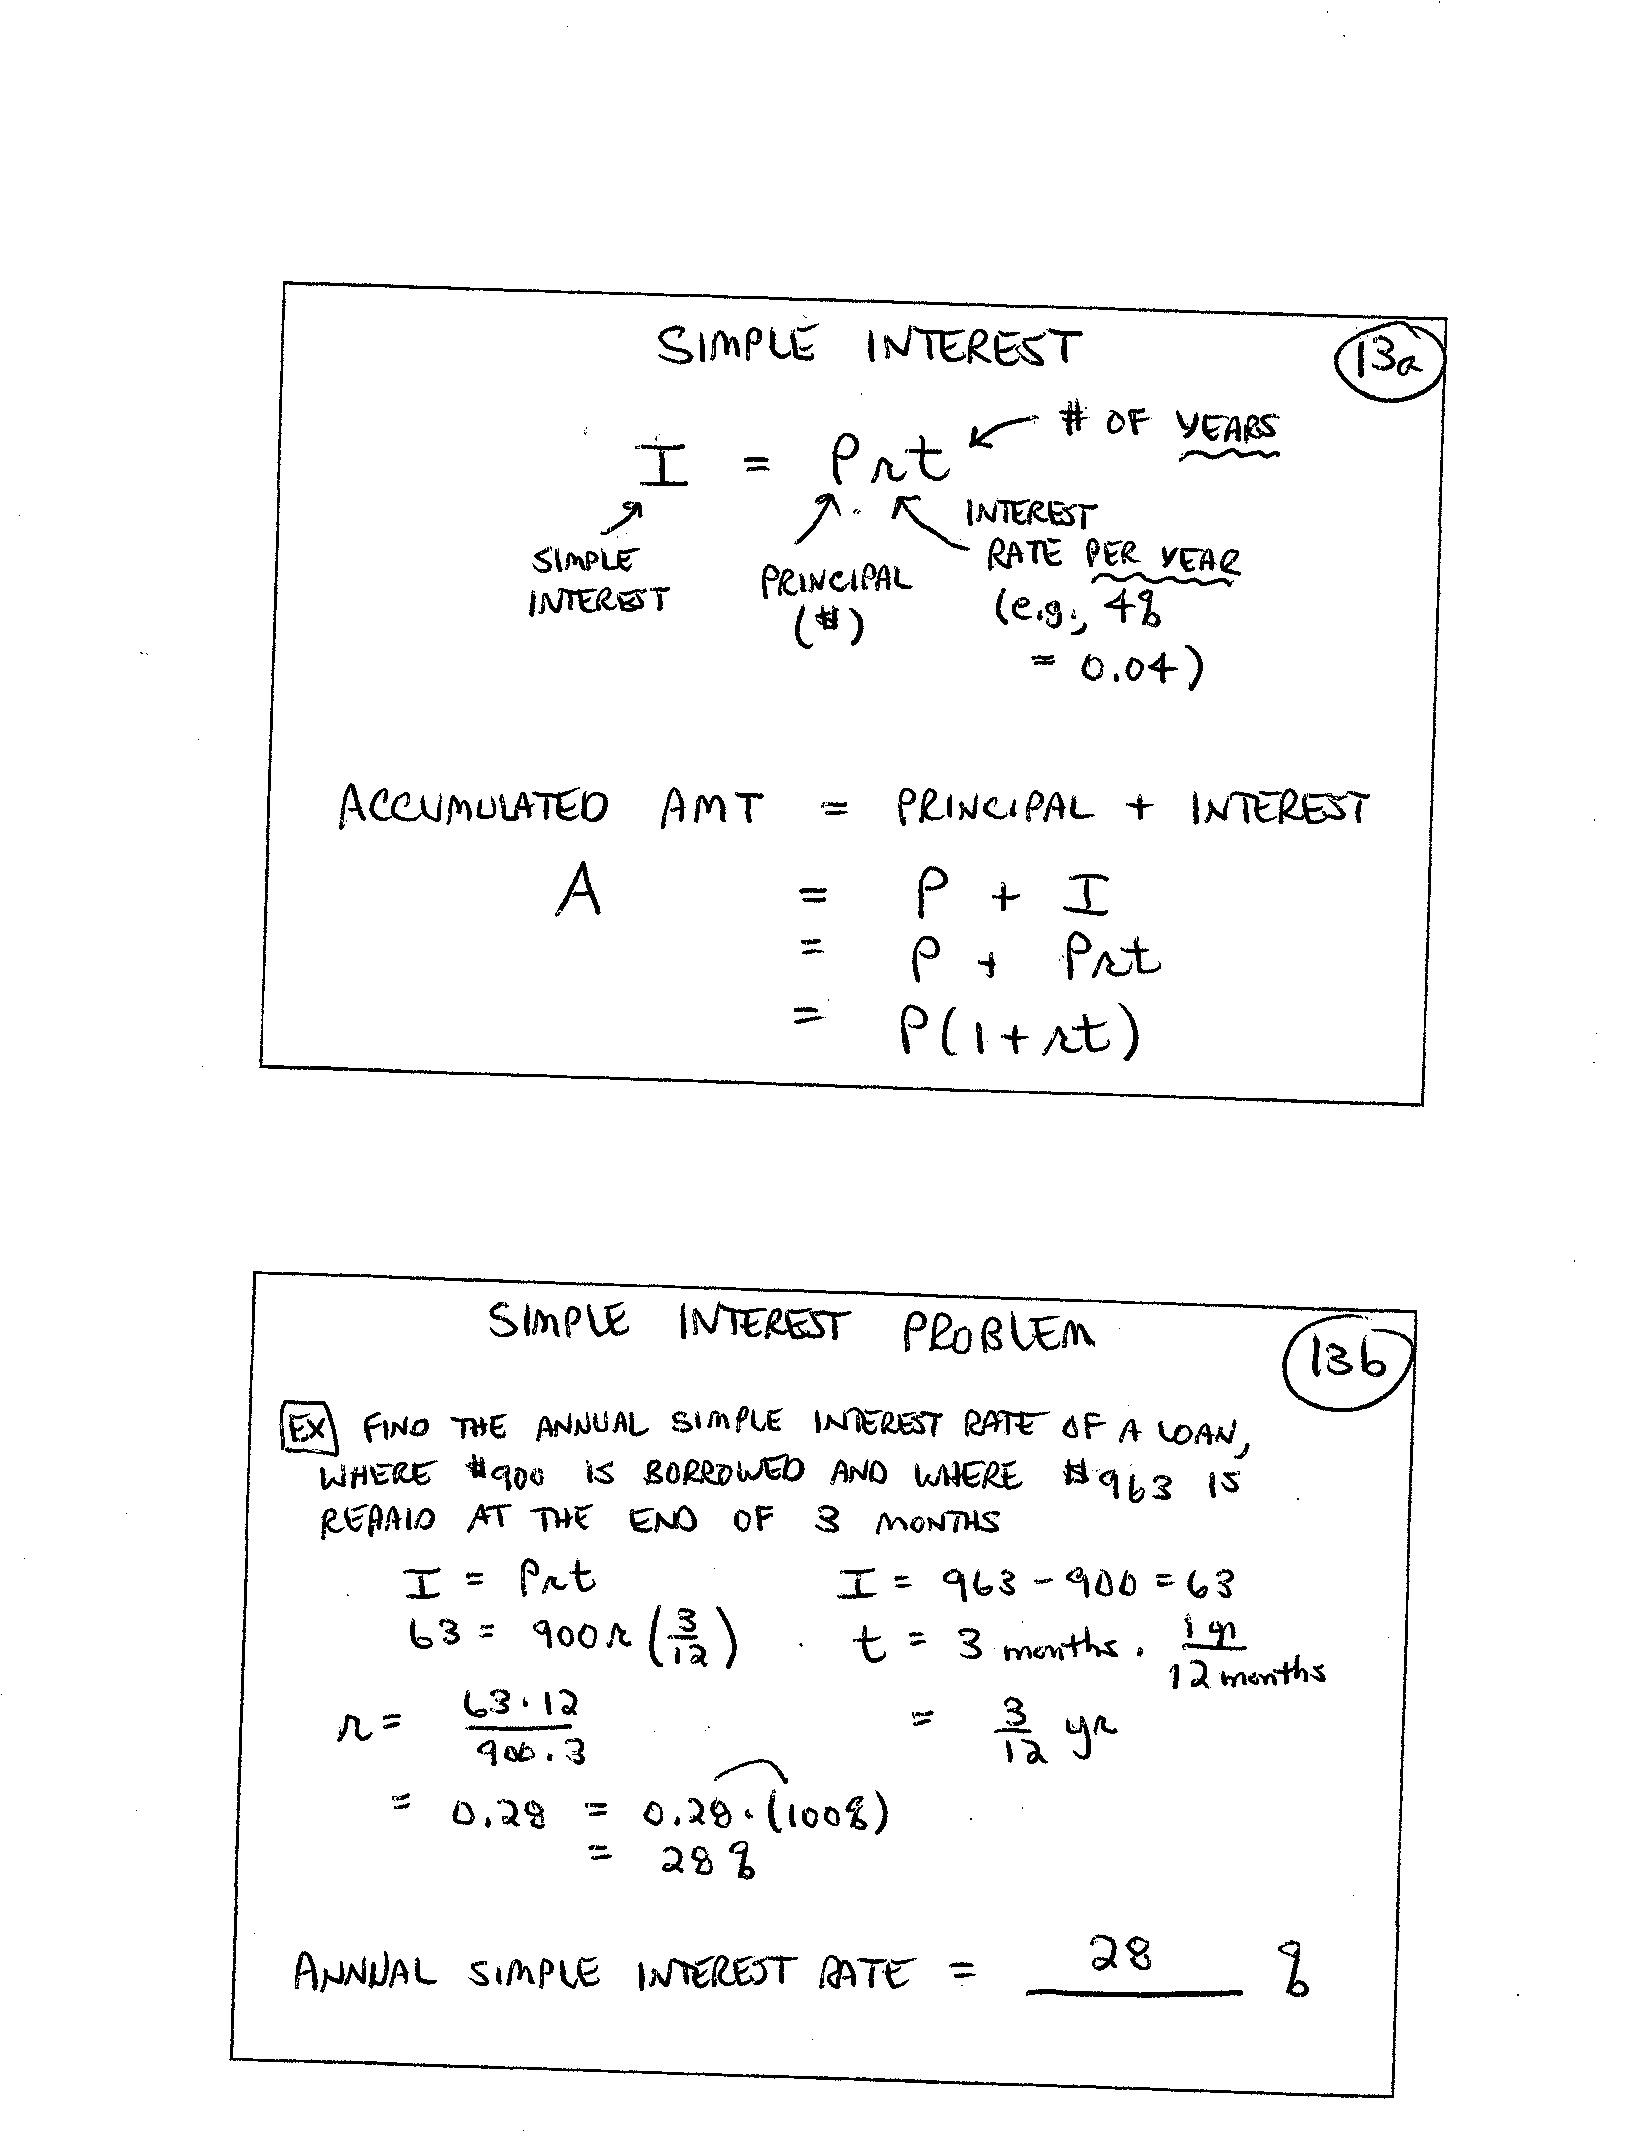 SIMPLE INTEREST
13a
I = Prt
# OF YEARS
SIMPLE
INTEREST
PRINCIPAL
($)
INTEREST
RATE PER YEAR
(e.g., 4%
= 0.04)
ACCUMULATED AMT = PRINCIPAL + INTEREST
A = P + I
= P + Prt
= P(1+rt)
SIMPLE INTEREST PROBLEM
13b
EX FIND THE ANNUAL SIMPLE INTEREST RATE OF A LOAN,
WHERE $900 IS BORROWED AND WHERE $963 IS
REPAID AT THE END OF 3 MONTHS
I = Prt
63 = 900r(3/12)
r = 63·12/900·3
= 0.28 = 0.28·(100%)
= 28%
I = 963 - 900 = 63
t = 3 months · 1 yr/12 months
= 3/12 yr
ANNUAL SIMPLE INTEREST RATE = 28 %